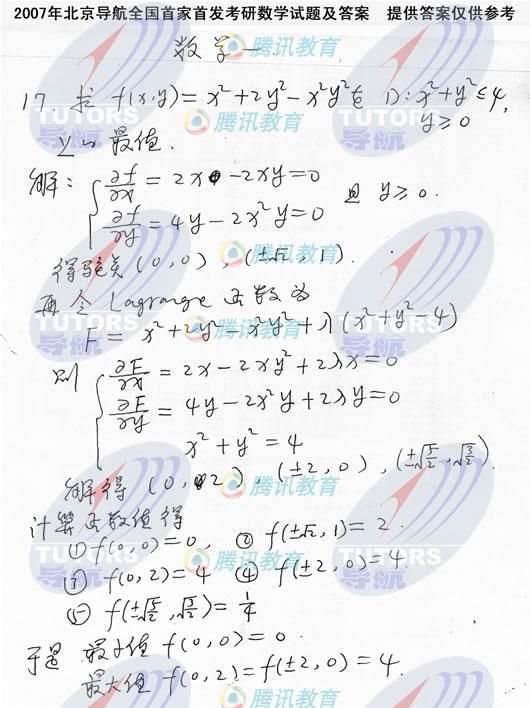 2007年北京导航全国首家首发考研数学试题及答案 提供答案仅供参考
数学一.
17. 求 f(x,y)=x²+2y²-x²y²在 D: x²+y²≤4,
y≥0
上的最值.
解: { ∂f/∂x = 2x -2xy=0
∂f/∂y = 4y-2x²y=0 且 y≥0.
得驻点 (0,0), (±√2, 1).
再令 Lagrange 函数为
F= x²+2y²-x²y²+λ(x²+y²-4)
则 { ∂F/∂x = 2x-2xy²+2λx=0
∂F/∂y = 4y-2x²y+2λy=0
x²+y²=4
解得 (0, 2), (±2, 0), (±√5/2, √3/2).
计算函数值得
① f(0,0)=0, ② f(±√2, 1)=2.
③ f(0,2)=4 ④ f(±2,0)=4.
⑤ f(±√5/2, √3/2)=1/4
于是 最小值 f(0,0)=0.
最大值 f(0,2)=f(±2,0)=4.
腾讯教育
TUTORS
导航